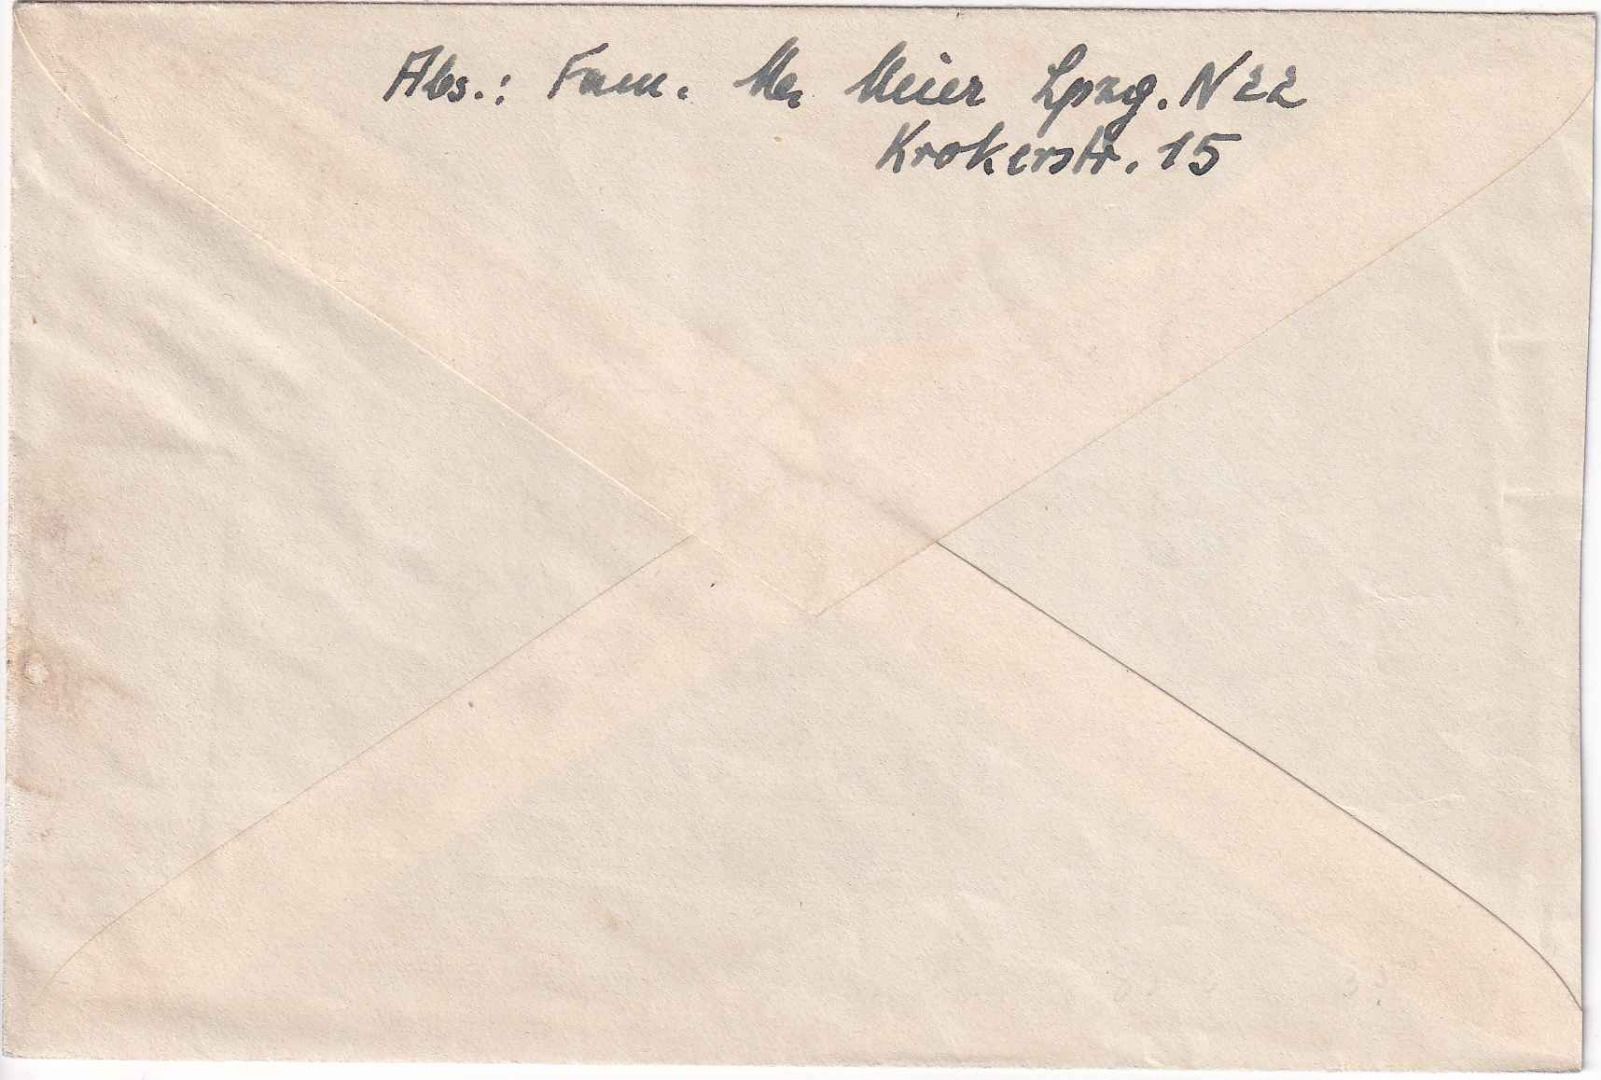 Abs.: Fam. Me. Meier Lpzg. N 22
Krokerstr. 15